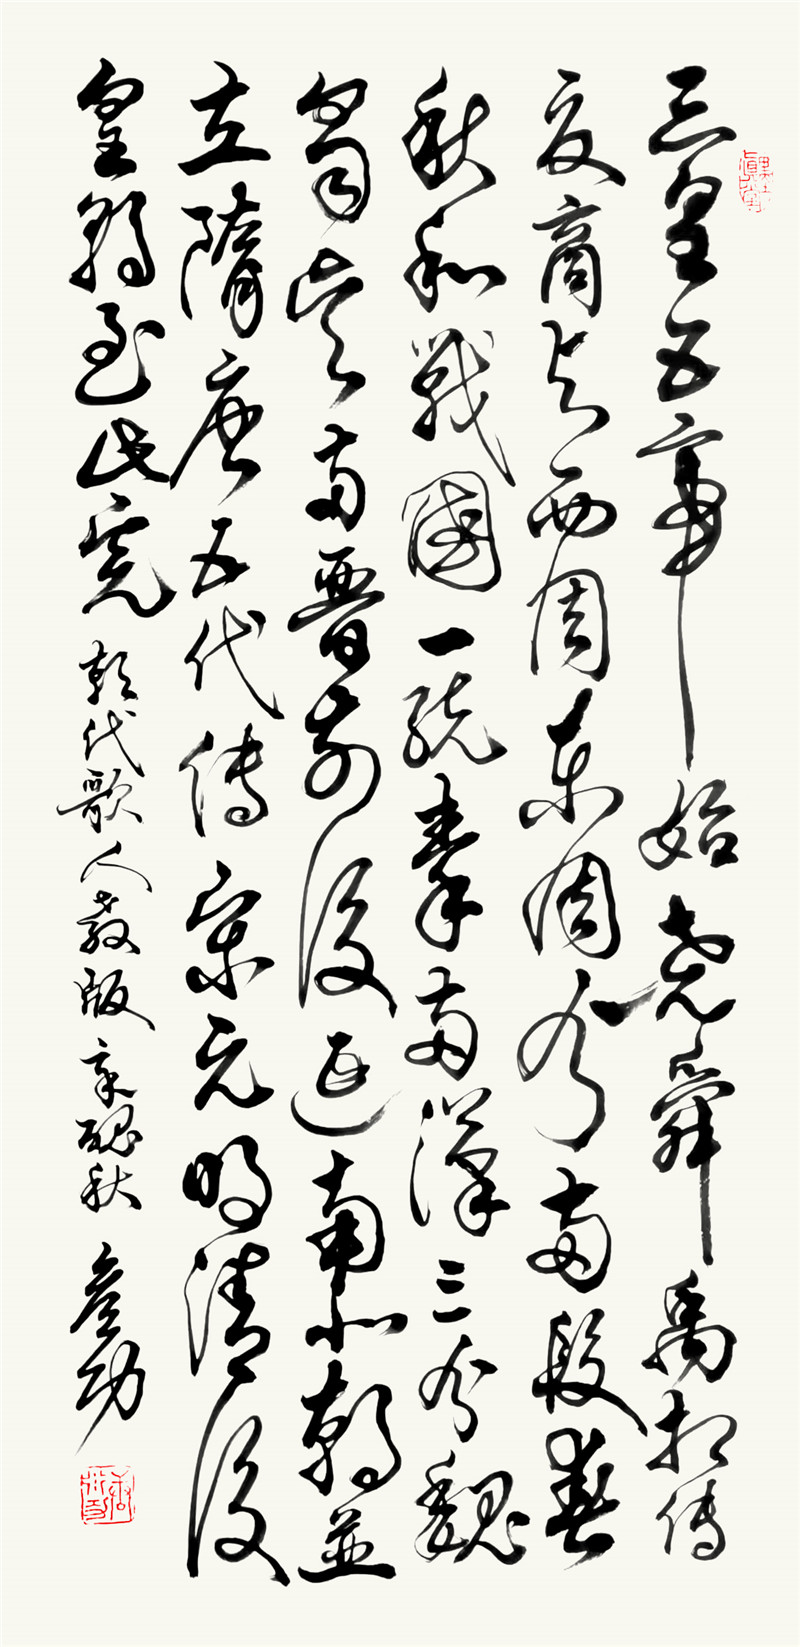 三皇五帝始尧舜禹相传
夏商与西周东周分两段春
秋和戰國一统秦两漢三分魏
蜀吴两晋前後延南北朝並
立隋唐五代傳宋元明清後
皇朝至此完 朝代歌人教版 辛醜秋